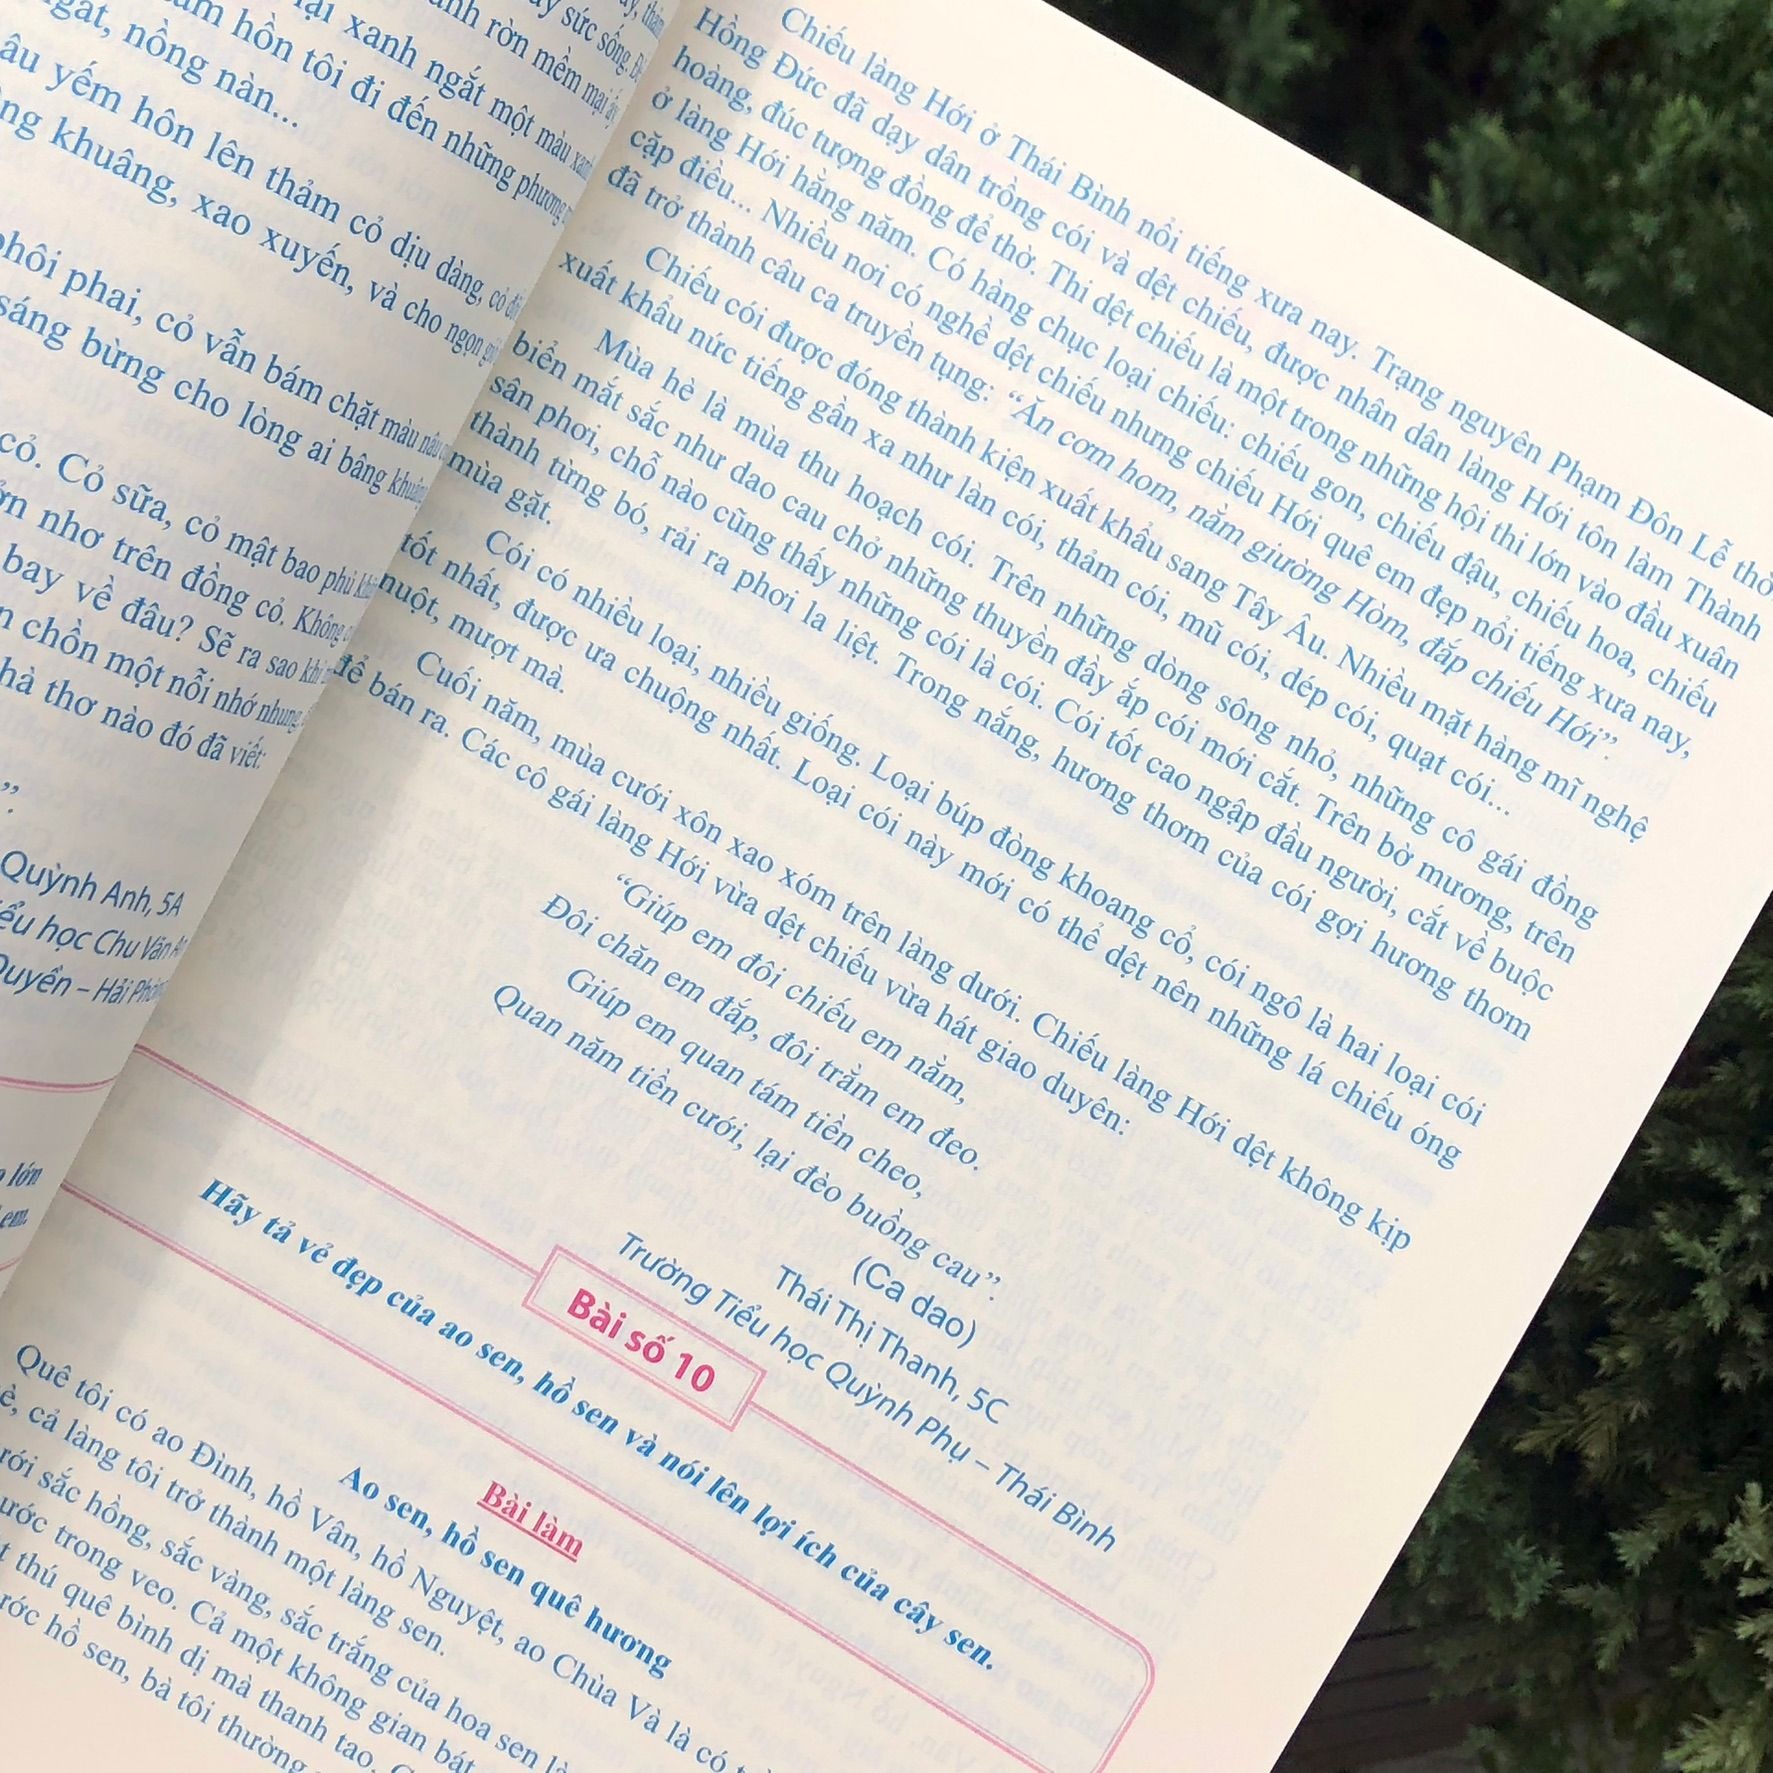 lại xanh ngắt một màu xanh
ngát, nồng nàn...
hồn tôi đi đến những phương
âu yếm hôn lên thảm cỏ dịu dàng, cỏ
khuâng, xao xuyến, và cho ngọn
phôi phai, cỏ vẫn bám chặt màu nâu
sáng bừng cho lòng ai bâng khuâng
cỏ. Cỏ sữa, cỏ mật bao phủ
nhơ trên đồng cỏ. Không
bay về đâu? Sẽ ra sao khi
chồn một nỗi nhớ nhung
nhà thơ nào đó đã viết:
”.
Quỳnh Anh, 5A
Tiểu học Chu Văn An
Quyền – Hải Phòng
lớn
em.
Chiếu làng Hới ở Thái Bình nổi tiếng xưa nay. Trạng nguyên Phạm Đôn Lễ thời
Hồng Đức đã dạy dân trồng cói và dệt chiếu, được nhân dân làng Hới tôn làm Thành
hoàng, đúc tượng đồng để thờ. Thi dệt chiếu là một trong những hội thi lớn vào đầu xuân
ở làng Hới hằng năm. Có hàng chục loại chiếu: chiếu gon, chiếu đậu, chiếu hoa, chiếu
cặp điều... Nhiều nơi có nghề dệt chiếu nhưng chiếu Hới quê em đẹp nổi tiếng xưa nay,
đã trở thành câu ca truyền tụng: “Ăn cơm hom, nằm giường Hòm, đắp chiếu Hới”.
Chiếu cói được đóng thành kiện xuất khẩu sang Tây Âu. Nhiều mặt hàng mĩ nghệ
xuất khẩu nức tiếng gần xa như làn cói, thảm cói, mũ cói, dép cói, quạt cói...
Mùa hè là mùa thu hoạch cói. Trên những dòng sông nhỏ, những cô gái đồng
biển mắt sắc như dao cau chở những thuyền đầy ắp cói mới cắt. Trên bờ mương, trên
sân phơi, chỗ nào cũng thấy những cói là cói. Cói tốt cao ngập đầu người, cắt về buộc
thành từng bó, rải ra phơi la liệt. Trong nắng, hương thơm của cói gợi hương thơm
mùa gặt.
Cói có nhiều loại, nhiều giống. Loại búp đòng khoang cổ, cói ngô là hai loại cói
tốt nhất, được ưa chuộng nhất. Loại cói này mới có thể dệt nên những lá chiếu óng
nuột, mượt mà.
Cuối năm, mùa cưới xôn xao xóm trên làng dưới. Chiếu làng Hới dệt không kịp
để bán ra. Các cô gái làng Hới vừa dệt chiếu vừa hát giao duyên:
“Giúp em đôi chiếu em nằm,
Đôi chăn em đắp, đôi trằm em đeo.
Giúp em quan tám tiền cheo,
Quan năm tiền cưới, lại đèo buồng cau”.
(Ca dao)
Thái Thị Thanh, 5C
Trường Tiểu học Quỳnh Phụ – Thái Bình
Bài số 10
Hãy tả vẻ đẹp của ao sen, hồ sen và nói lên lợi ích của cây sen.
Bài làm
Ao sen, hồ sen quê hương
Quê tôi có ao Đình, hồ Vân, hồ Nguyệt, ao Chùa Và là có
cả làng tôi trở thành một làng sen.
sắc hồng, sắc vàng, sắc trắng của hoa sen
nước trong veo. Cả một không gian bát
thú quê bình dị mà thanh tao.
hồ sen, bà tôi thường